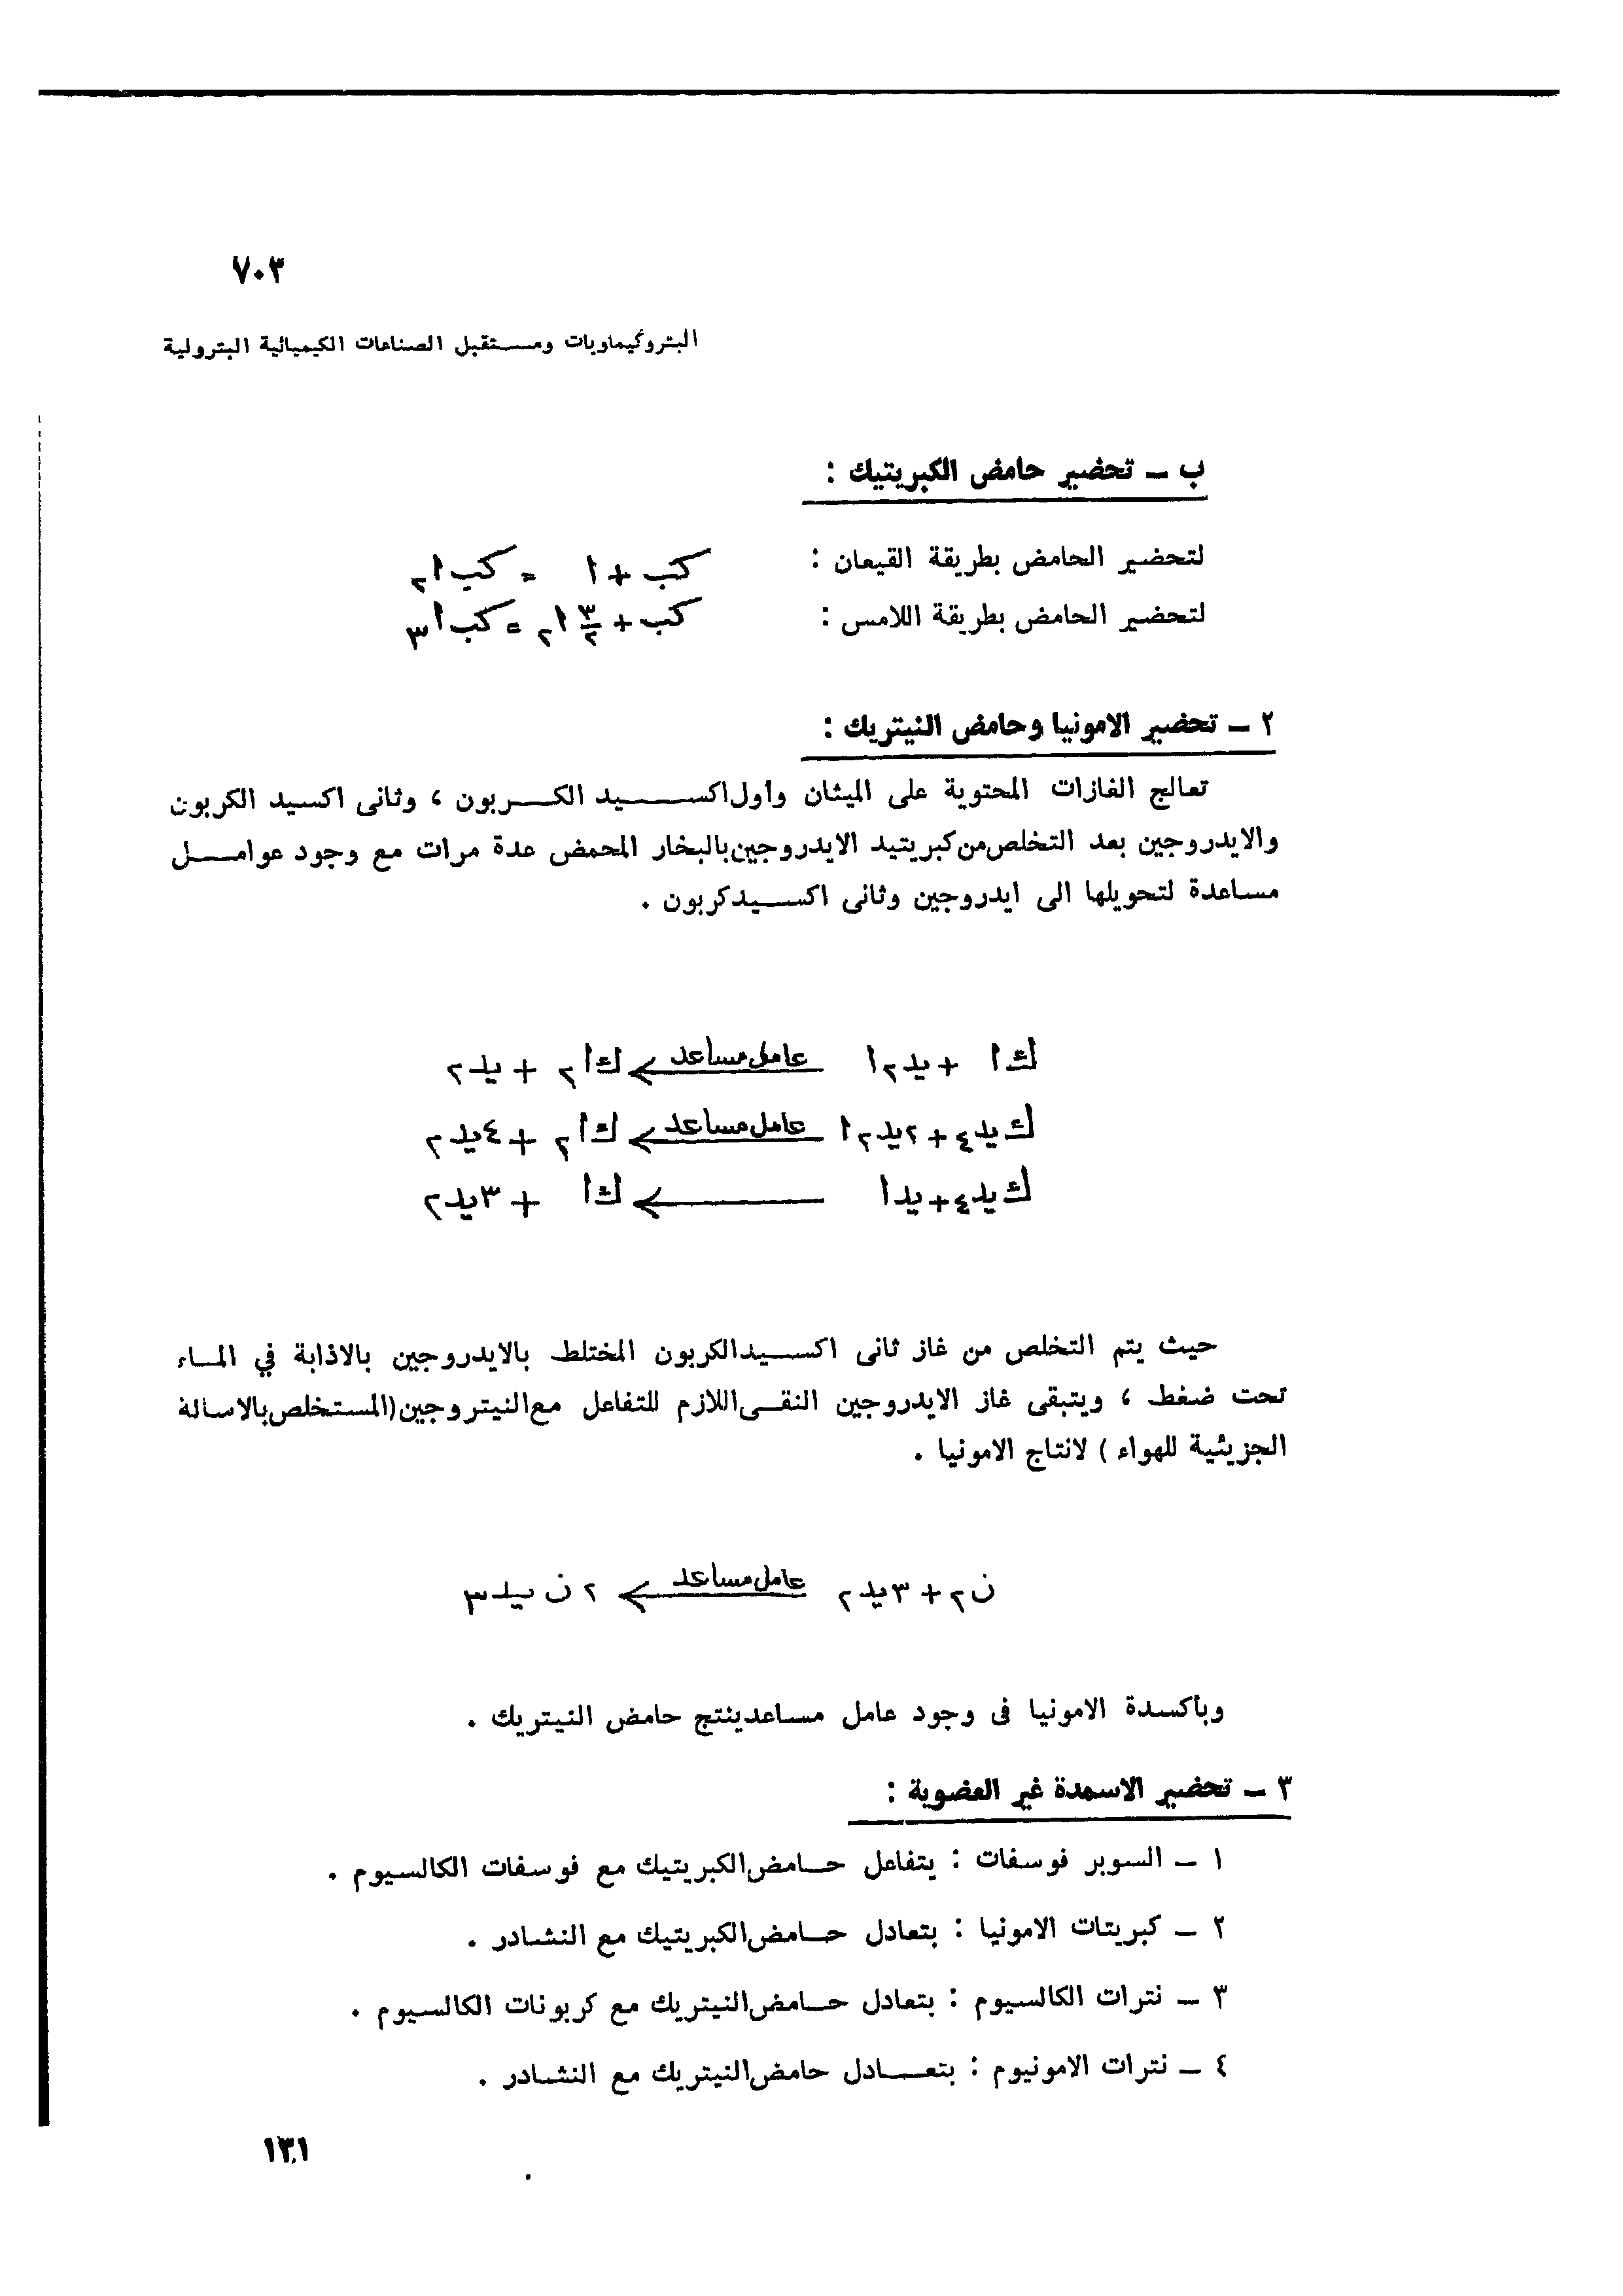 ٧٠٣
البتروكيماويات ومستقبل الصناعات الكيميائية البترولية
ب — تحضير حامض الكبريتيك :
لتحضير الحامض بطريقة القيعان : كب + ا = كب ا ٢
لتحضير الحامض بطريقة اللامس : كب + ٣/٢ ا ٢ = كب ا ٣
٢ — تحضير الامونيا وحامض النيتريك :
تعالج الغازات المحتوية على الميثان وأول اكسيد الكربون ، وثانى اكسيد الكربون
والايدروجين بعد التخلص من كبريتيد الايدروجين بالبخار المحمض عدة مرات مع وجود عوامل
مساعدة لتحويلها الى ايدروجين وثانى اكسيد كربون .
ك ا + يد ٢ ا عامل مساعد ← ك ا ٢ + يد ٢
ك يد ٤ + ٢ يد ٢ ا عامل مساعد ← ك ا ٢ + ٤ يد ٢
ك يد ٤ + يد ا ← ك ا + ٣ يد ٢
حيث يتم التخلص من غاز ثانى اكسيد الكربون المختلط بالايدروجين بالاذابة في الماء
تحت ضغط ، ويتبقى غاز الايدروجين النقى اللازم للتفاعل مع النيتروجين (المستخلص بالاسالة
الجزيئية للهواء ) لانتاج الامونيا .
ن ٢ + ٣ يد ٢ عامل مساعد ← ٢ ن يد ٣
وبأكسدة الامونيا فى وجود عامل مساعد ينتج حامض النيتريك .
٣ — تحضير الاسمدة غير العضوية :
١ — السوبر فوسفات : يتفاعل حامض الكبريتيك مع فوسفات الكالسيوم .
٢ — كبريتات الامونيا : بتعادل حامض الكبريتيك مع النشادر .
٣ — نترات الكالسيوم : بتعادل حامض النيتريك مع كربونات الكالسيوم .
٤ — نترات الامونيوم : بتعادل حامض النيتريك مع النشادر .
١٣١